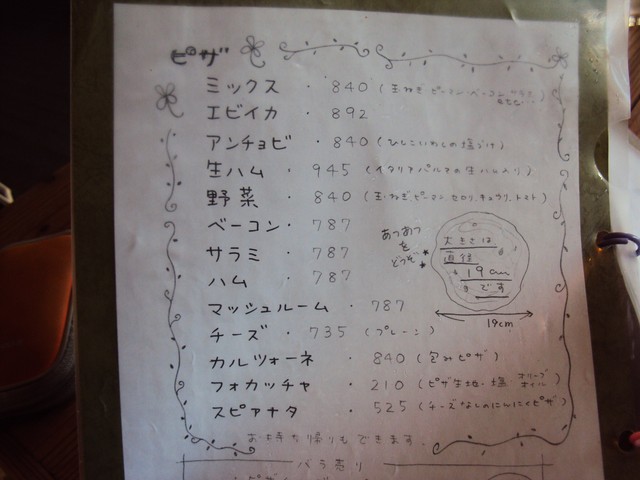 ピザ
ミックス ・ 840 (玉ねぎ・ピーマン・ベーコン・サラミ
エビイカ ・ 892
アンチョビ ・ 840 (ひしこいわしの塩づけ)
生ハム ・ 945 (イタリアパルマの生ハム入り)
野菜 ・ 840 (玉ねぎ・ピーマン・セロリ・キュウリ・トマト)
ベーコン ・ 787
サラミ ・ 787
ハム ・ 787
マッシュルーム ・ 787
チーズ ・ 735 (プレーン)
カルツォーネ ・ 840 (包みピザ)
フォカッチャ ・ 210 (ピザ生地・塩・オリーブオイル)
スピアナタ ・ 525 (チーズなしのにんにくピザ)
あつあつ
を
どうぞ
大きさは
直径
19cm
です
19cm
お持ち帰りもできます.
バラ売り